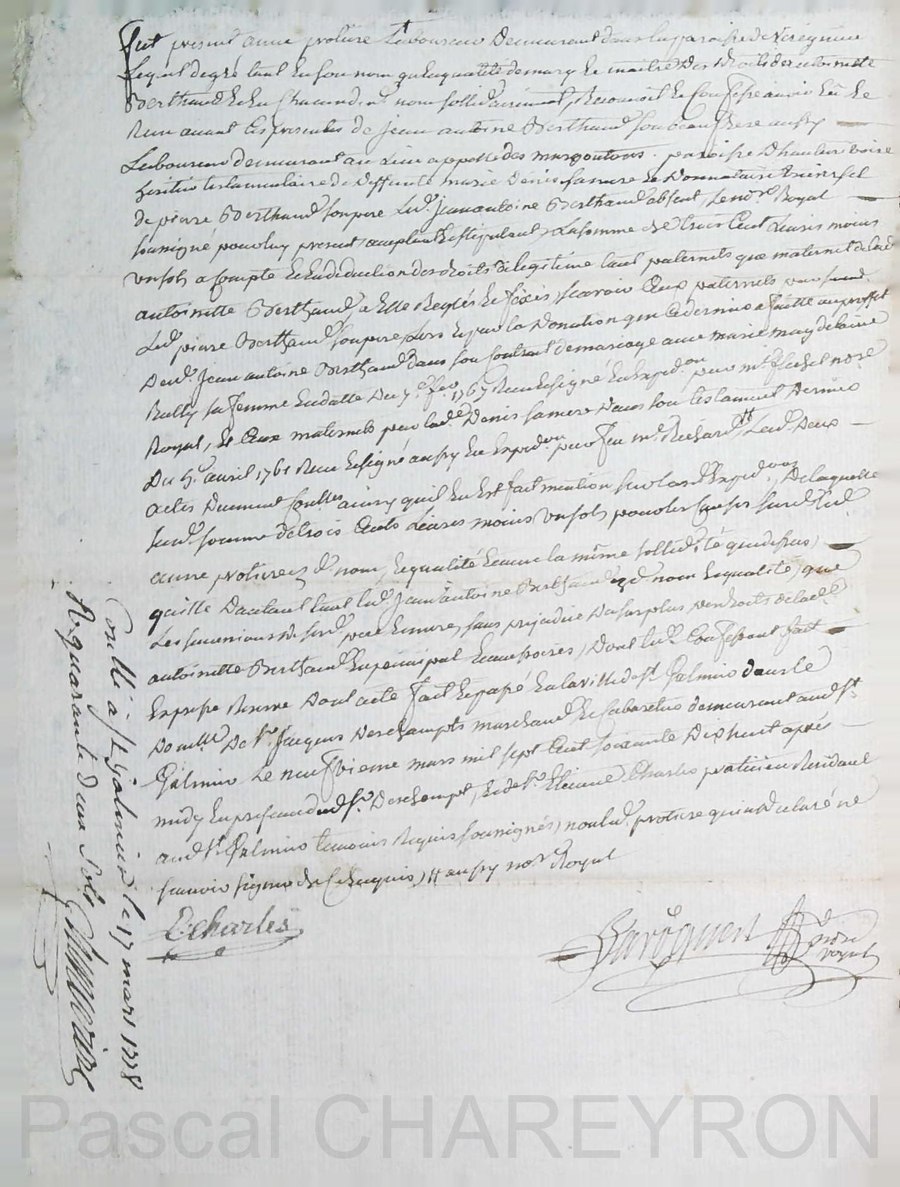 Fut present anne protiere Laboureur Demeurant dans la parroisse de
Lequel de gré tant en son nom qu'en qualité de mary et maitre des Droits de antoinette
Berthaud et en chacun dits noms sollidairement, Reconnoit et Confesse avoir Eu et
Receu avant les presentes de jean antoine Berthaud son beau frere aussy
Laboureur demeurant au Lieu appellé des margoutons parroisse D'hauterivoire
heritier testamentaire de deffunte marie Denis sa mere et Donnataire universel
de pierre Berthaud son pere Led. jean antoine Berthaud absent, Le nore Royal
soussigné pour luy present acceptant et stipulant, La somme de trois Cent Livres moins
un sols a Compte et en deduction des droits de legitime tant paternels que maternels de lad.
antoinette Berthaud a Elle Reglés et fixés sçavoir Ceux paternels par
Led. pierre Berthaud son pere, Lors et par la Donation que Ce dernier a faitte au proffit
Dud. Jean antoine Berthaud dans son Contrat de mariage avec marie magdelaine
Rully sa femme en datte Du 7e fevr 1767 Receu et signé en Expedon par me flachat nore
Royal, et Ceux maternels par lad. Denis sa mere Dans son testament Dernier
Du 5e avril 1761 Receu et signé aussy en Expedon par feu me Richard Lesd. Deux
actes Duement Conllés ainsy qu'il en Est fait mention sur lesd. Expedons, De laquelle
susd. somme de trois Cents Livres moins un sols pour les Causes susd. Led.
anne protiere esd. noms et qualité et avec la même sollidité que dessus,
quitte D'autant tant led. Jean antoine Berthaud esd. nom et qualité, que
Les successions de sesd. pere et mere, sans prejudice Du surplus des droits de lad.
antoinette Berthaud En principal et accessoires, Dont led. Confessant fait
Expresse Reserve Dont acte fait et passé en la ville de st Galmier dans le
Domicille De sr. Jacques Deschampts marchand et Cabaretier demeurant aud. st
Galmier Le neuf vieme mars mil sept Cent soixante Dix huit après
midy En presence dud. sr. Deschampt, et de sr. Etienne Charles praticien Residant
aud. st. Galmier temoins Requis soussignés, non led. protiere qui a declaré ne
sçavoir signer de Ce Enquis, # aussy nore Royal
E: Charles
nore royal
Conllé a st galmier le 17 mars 1778
R quarante deux sols
Pascal CHAREYRON